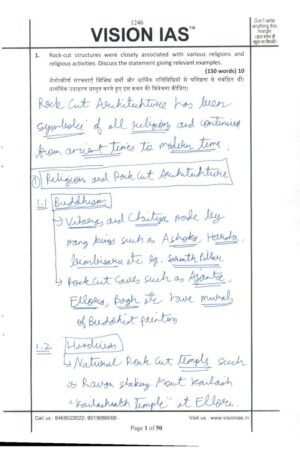 1246
VISION IAS™
Don't write anything this margin
(इस भाग में कुछ ना लिखें)
1. Rock-cut structures were closely associated with various religions and religious activities. Discuss the statement giving relevant examples.
(150 words) 10
शैलोत्कीर्ण संरचनाएं विभिन्न धर्मों और धार्मिक गतिविधियों से घनिष्ठता से संबंधित थीं।
प्रासंगिक उदाहरण प्रस्तुत करते हुए इस कथन की विवेचना कीजिए।
Rock Cut Architehture has been
symbolic of all religion and continuing
from ancient times to modern time.
① Religion and Rock Cut Architehture
1.1 Buddhism
→ Viharas and Chaitya made by
many kings such as Ashoka,
Bimbisara etc eg. Sarnath Pillar
→ Rock Cut Caves such as Ajanta,
Ellora, Bagh etc have murals
of Buddhist painting
1.2 Hinduism
→ Natural Rock Cut temple such
as Ravan shaking Mount Kailash
"Kailashnath Temple" at Ellora.
Call us : 8468022022, 9019066066
Visit us : www.visionias.in
Page 1 of 50